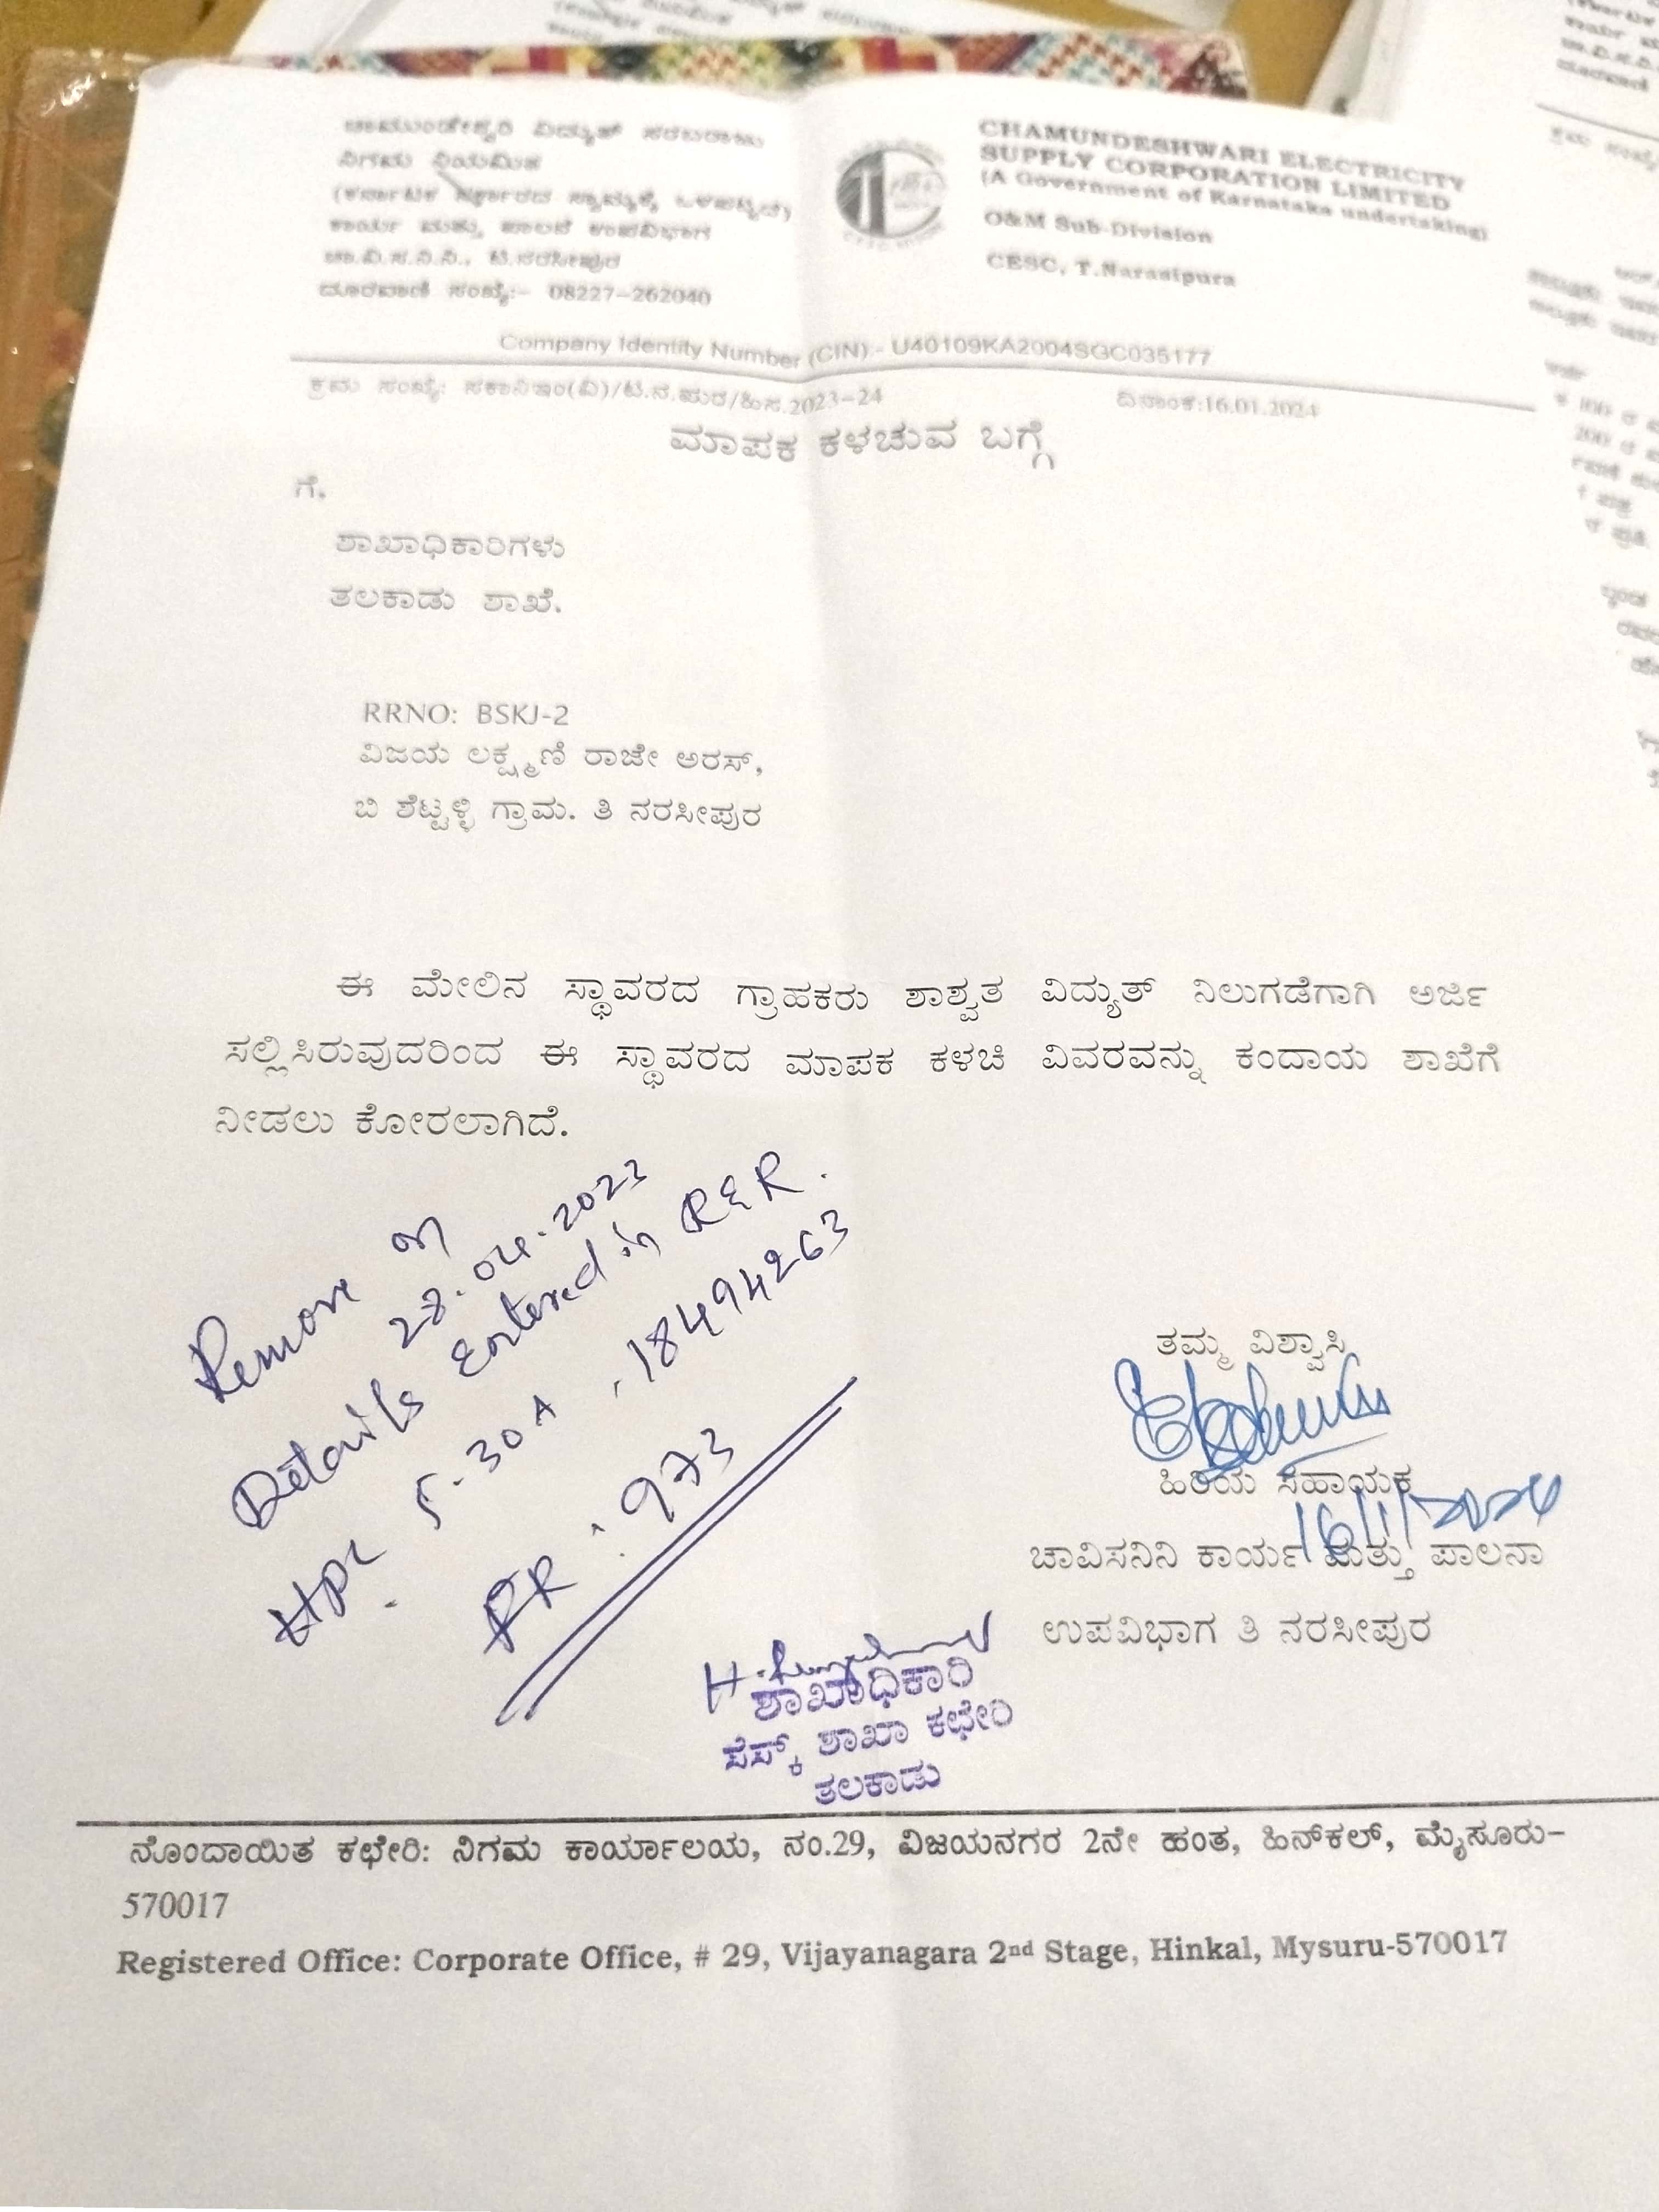 ಚಾಮುಂಡೇಶ್ವರಿ ವಿದ್ಯುತ್ ಸರಬರಾಜು
ನಿಗಮ ನಿಯಮಿತ
(ಕರ್ನಾಟಕ ಸರ್ಕಾರದ ಸ್ವಾಮ್ಯಕ್ಕೆ ಒಳಪಟ್ಟಿದೆ)
ಕಾರ್ಯ ಮತ್ತು ಪಾಲನೆ ಉಪವಿಭಾಗ
ಚಾ.ವಿ.ಸ.ನಿ.ನಿ., ಟಿ.ನರಸೀಪುರ
ದೂರವಾಣಿ ಸಂಖ್ಯೆ:- 08227-262040
CHAMUNDESHWARI ELECTRICITY
SUPPLY CORPORATION LIMITED
(A Government of Karnataka undertaking)
O&M Sub-Division
CESC, T.Narasipura
Company Identity Number (CIN):- U40109KA2004SGC035177
ಕ್ರಮ ಸಂಖ್ಯೆ: ಸಕಾನಿಇಂ(ವಿ)/ಟಿ.ನ.ಪುರ/ಹಿಸ.2023-24
ದಿನಾಂಕ:16.01.2024
ಮಾಪಕ ಕಳಚುವ ಬಗ್ಗೆ
ಗೆ.
ಶಾಖಾಧಿಕಾರಿಗಳು
ತಲಕಾಡು ಶಾಖೆ.
RRNO: BSKJ-2
ವಿಜಯ ಲಕ್ಷ್ಮಣಿ ರಾಜೇ ಅರಸ್,
ಬಿ ಶೆಟ್ಟಳ್ಳಿ ಗ್ರಾಮ. ತಿ ನರಸೀಪುರ
ಈ ಮೇಲಿನ ಸ್ಥಾವರದ ಗ್ರಾಹಕರು ಶಾಶ್ವತ ವಿದ್ಯುತ್ ನಿಲುಗಡೆಗಾಗಿ ಅರ್ಜಿ
ಸಲ್ಲಿಸಿರುವುದರಿಂದ ಈ ಸ್ಥಾವರದ ಮಾಪಕ ಕಳಚಿ ವಿವರವನ್ನು ಕಂದಾಯ ಶಾಖೆಗೆ
ನೀಡಲು ಕೋರಲಾಗಿದೆ.
Remove on
28.04.2023
Details Entered in R&R.
HPL 5-30A, 18494263
FR: 973
ತಮ್ಮ ವಿಶ್ವಾಸಿ
ಹಿರಿಯ ಸಹಾಯಕ
16/1/2024
ಚಾವಿಸನಿನಿ ಕಾರ್ಯ ಮತ್ತು ಪಾಲನಾ
ಉಪವಿಭಾಗ ತಿ ನರಸೀಪುರ
ಶಾಖಾಧಿಕಾರಿ
ಸೆಸ್ಕ್ ಶಾಖಾ ಕಛೇರಿ
ತಲಕಾಡು
ನೊಂದಾಯಿತ ಕಛೇರಿ: ನಿಗಮ ಕಾರ್ಯಾಲಯ, ನಂ.29, ವಿಜಯನಗರ 2ನೇ ಹಂತ, ಹಿನ್‌ಕಲ್, ಮೈಸೂರು-
570017
Registered Office: Corporate Office, # 29, Vijayanagara 2nd Stage, Hinkal, Mysuru-570017